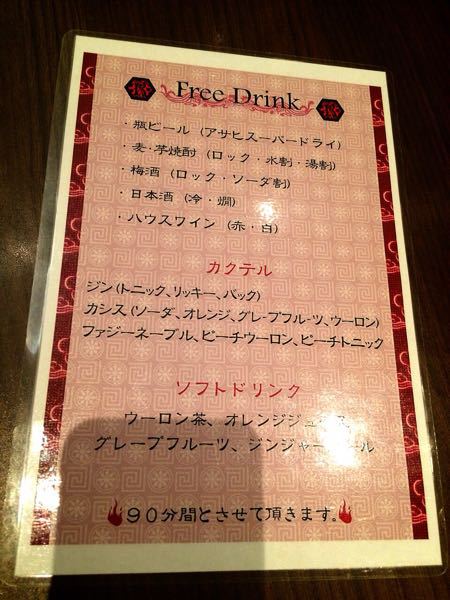 Free Drink
・瓶ビール (アサヒスーパードライ)
・麦・芋焼酎 (ロック・水割・湯割)
・梅酒 (ロック・ソーダ割)
・日本酒 (冷・燗)
・ハウスワイン (赤・白)
カクテル
ジン(トニック、リッキー、バック)
カシス(ソーダ、オレンジ、グレープフルーツ、ウーロン)
ファジーネーブル、ピーチウーロン、ピーチトニック
ソフトドリンク
ウーロン茶、オレンジジュース、
グレープフルーツ、ジンジャーエール
90分間とさせて頂きます。